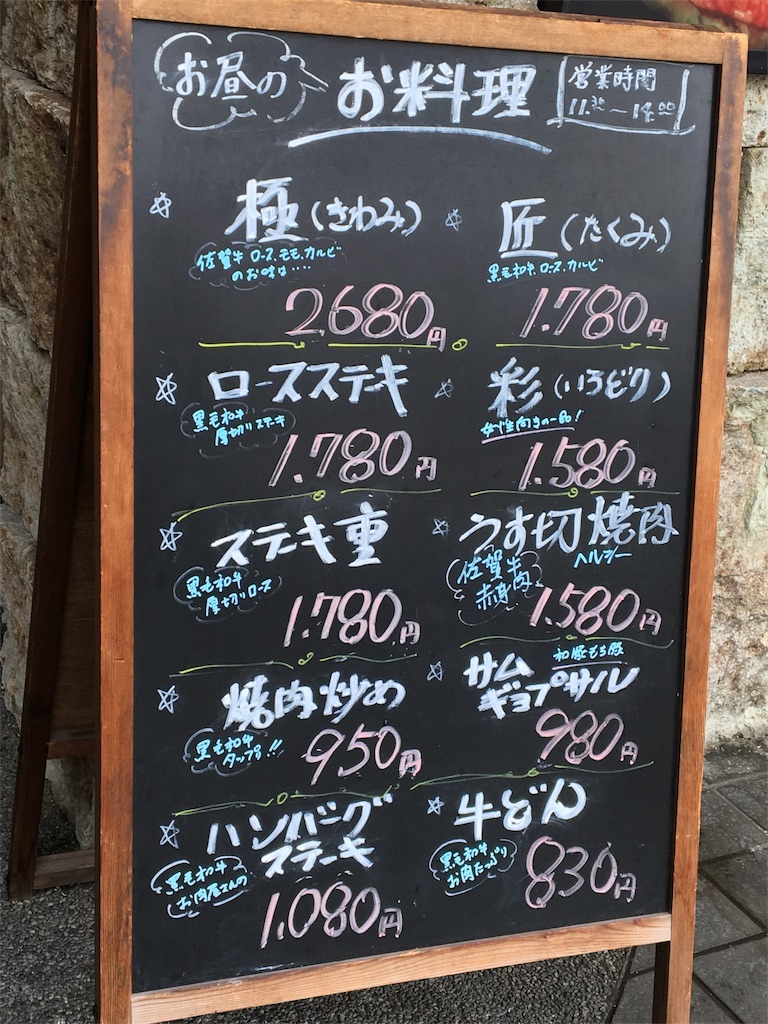 お昼の
お料理
営業時間
11:30～14:00
☆ 極(きわみ)
佐賀牛 ロース、モモ、カルビ
のお味は…
2680円
☆ 匠(たくみ)
黒毛和牛、ロース、カルビ
1.780円
☆ ロースステーキ
黒毛和牛
厚切りステーキ
1.780円
☆ 彩(いろどり)
女性向きの一品!
1.580円
☆ ステーキ重
黒毛和牛
厚切りロース
1.780円
☆ うす切焼肉
ヘルシー
佐賀牛
赤身肉
1.580円
☆ 焼肉炒め
黒毛和牛
タップリ!!
950円
☆ サム
ギョプサル
和豚もち豚
980円
☆ ハンバーグ
ステーキ
黒毛和牛
お肉屋さんの
1.080円
☆ 牛どん
黒毛和牛
お肉たっぷり
830円